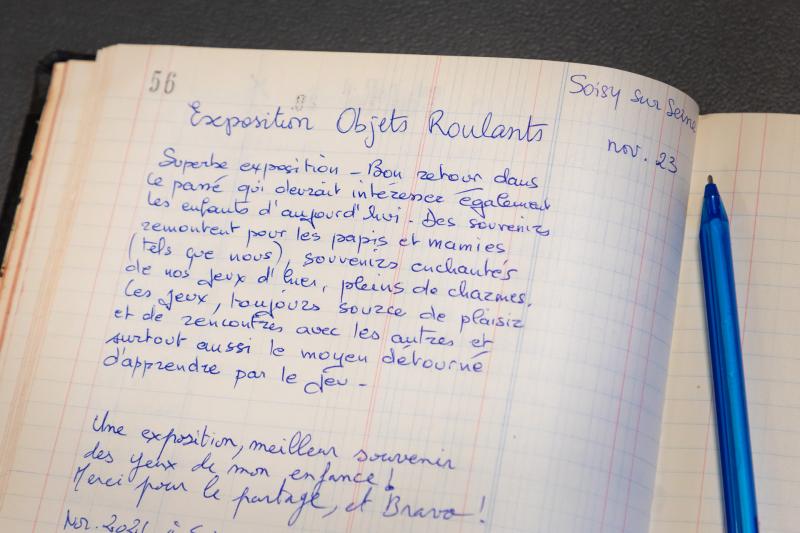 56
Soisy sur Seine
nov. 23
Exposition Objets Roulants
Superbe exposition - Bon retour dans
le passé qui devrait intéresser également
les enfants d'aujourd'hui - Des souvenirs
remontent pour les papis et mamies
(tels que nous), souvenirs enchantés
de nos jeux d'hier, pleins de charmes.
Les jeux, toujours source de plaisir
et de rencontres avec les autres et
surtout aussi le moyen détourné
d'apprendre par le jeu -
Une exposition, meilleur souvenir
des yeux de mon enfance !
Merci pour le partage, et Bravo !
Nov. 2021 à